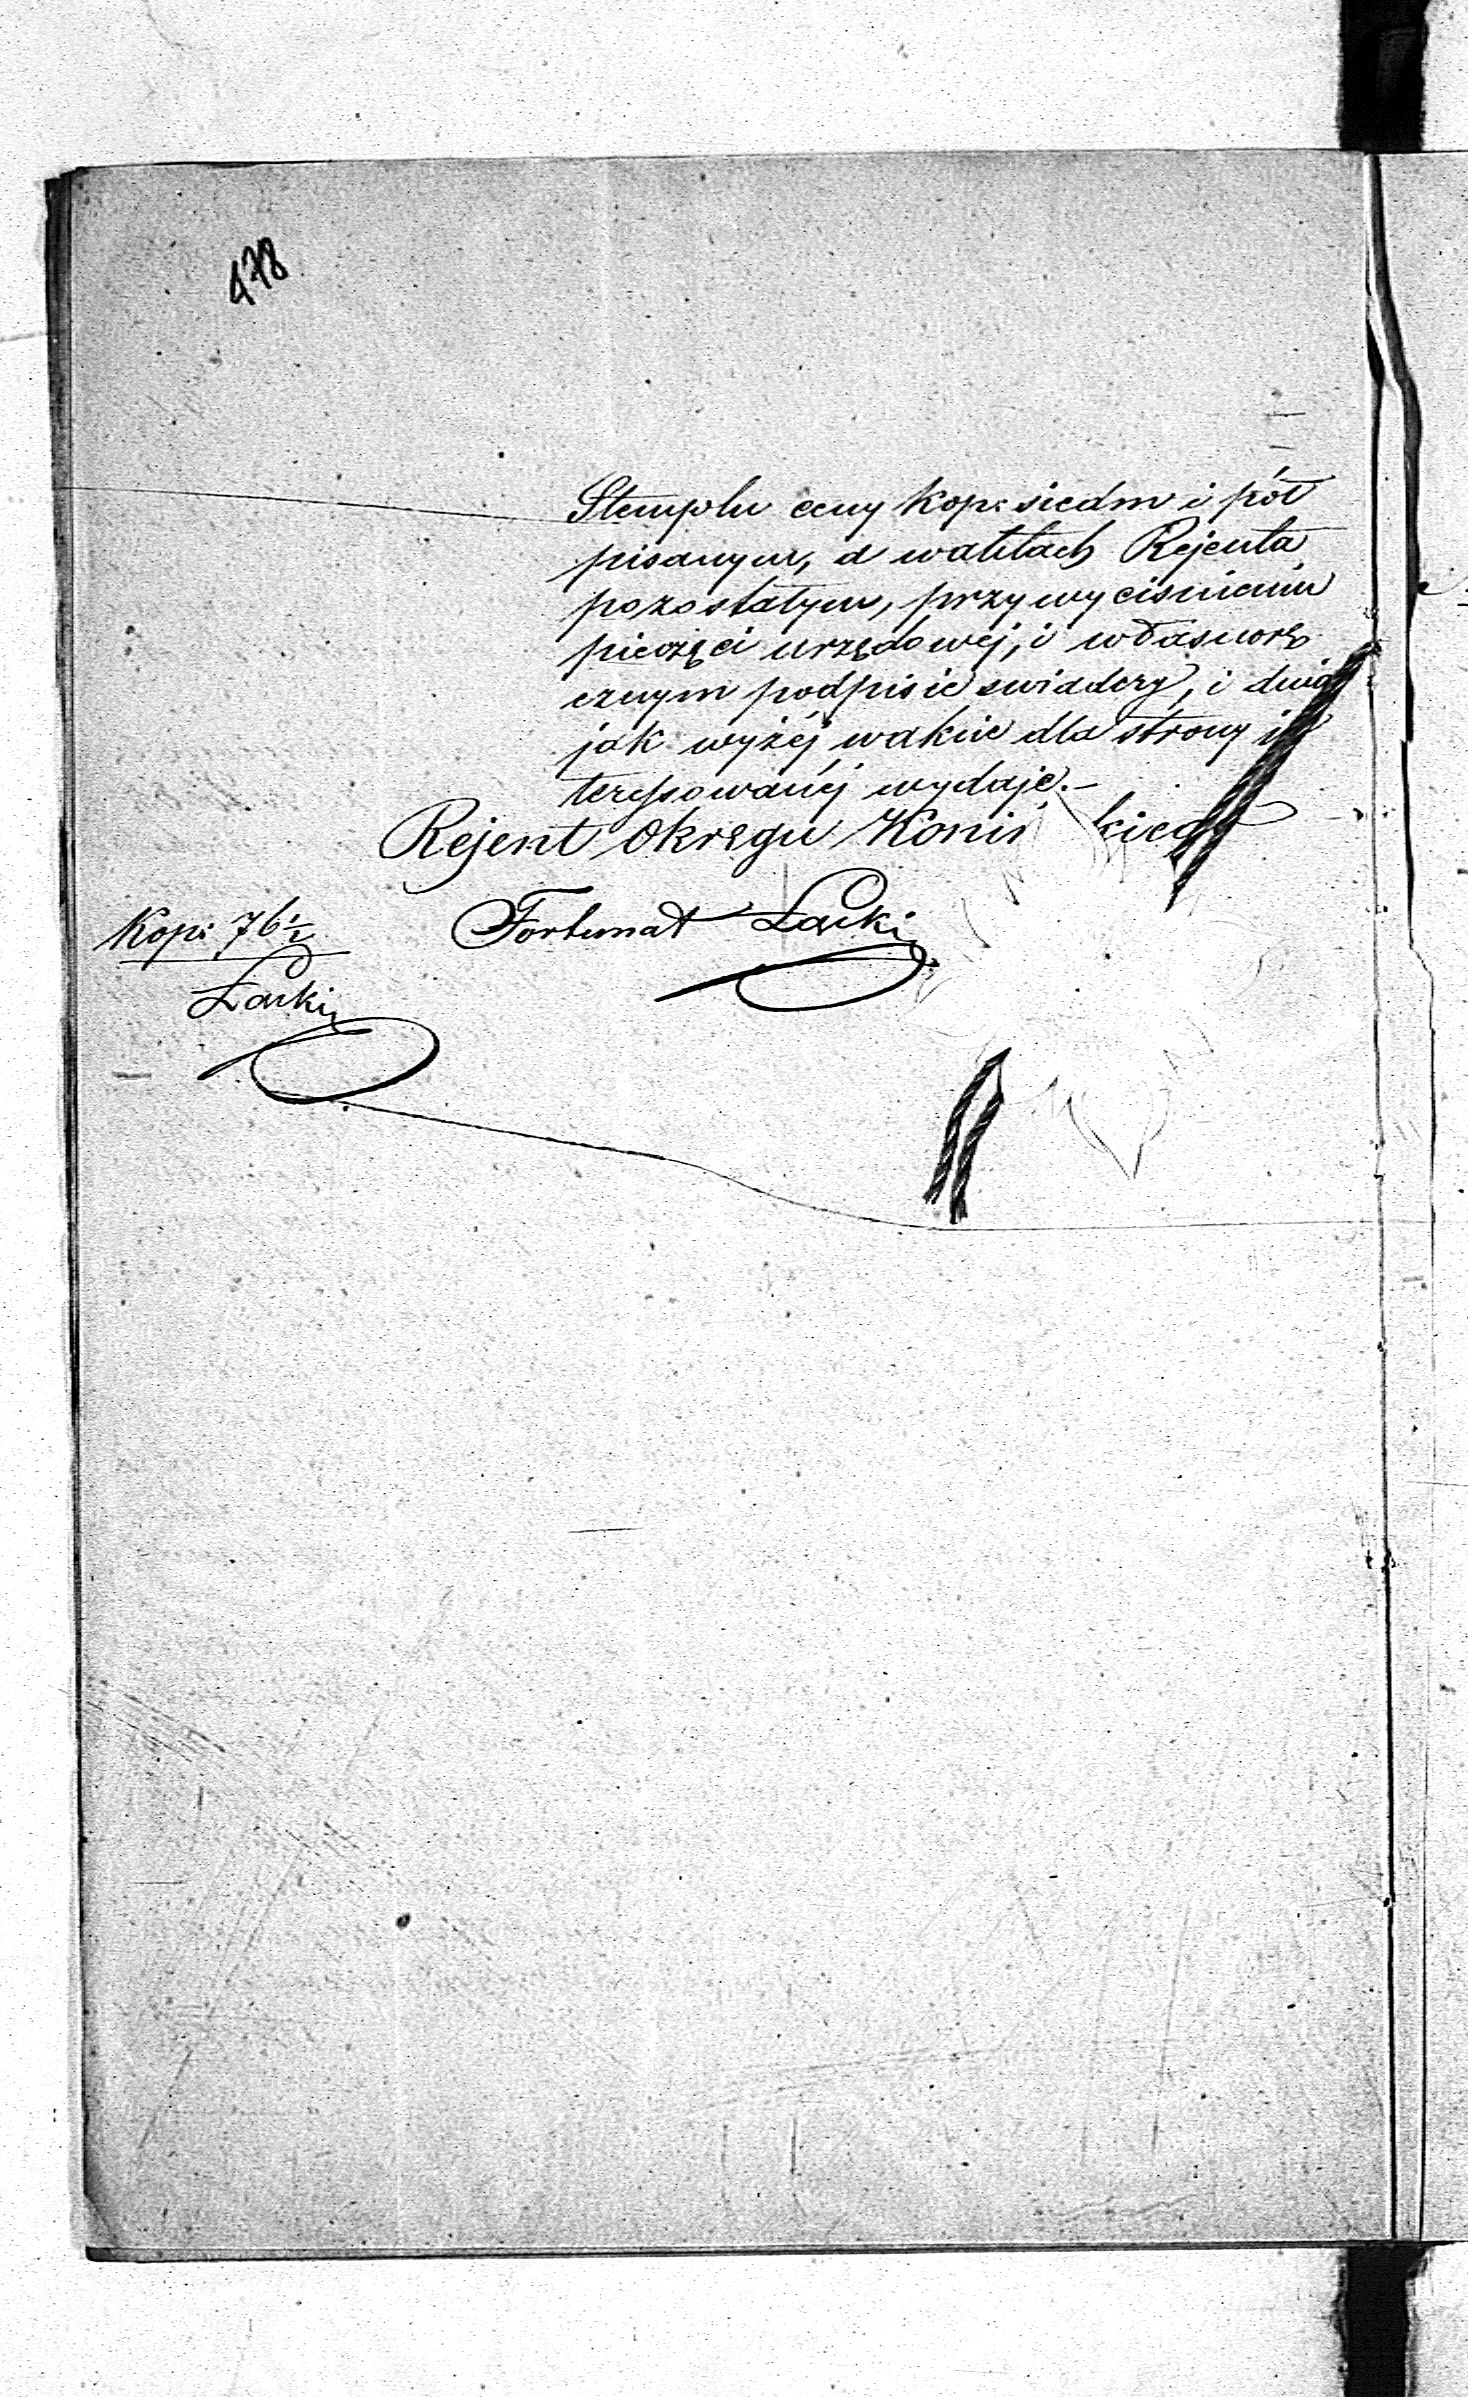 478
Stemplu ceny kop: siedm i pół
pisanym, a w aktach Rejenta
pozostałym, przy wyciśnieniu
pieczęci urzędowej, i własnorę
cznym podpisie świadczy, i
jak wyżej wakuie dla strony
teressowanéj wydaje.—
Rejent Okręgu
Fortunat Łacki
Kop: 76½
Łacki